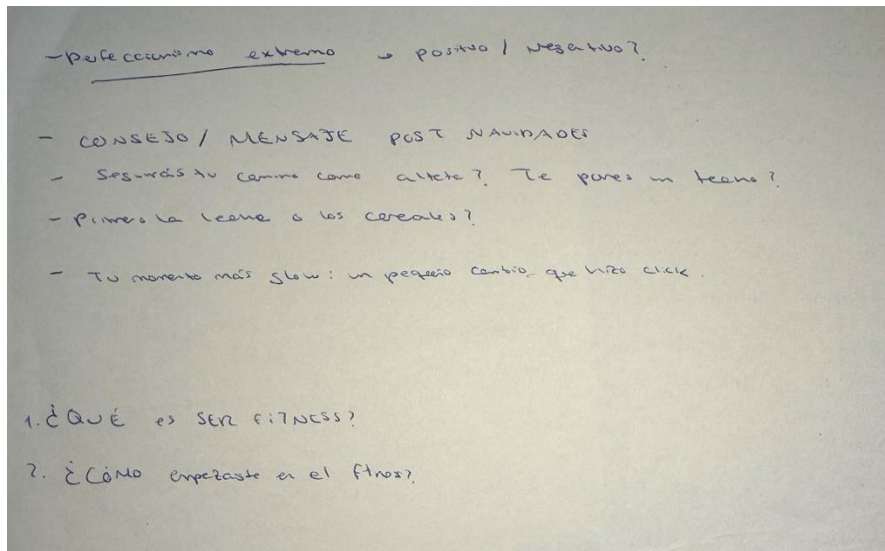 - perfeccionismo extremo → positivo / negativo?
- CONSEJO / MENSAJE POST NAVIDADES
- Seguirás tu camino como atleta? Te pones un techo?
- Primero la leche o los cereales?
- Tu momento más glow: un pequeño cambio que hizo click.
1. ¿QUÉ es SER FITNESS?
2. ¿CÓMO empezaste en el fitness?